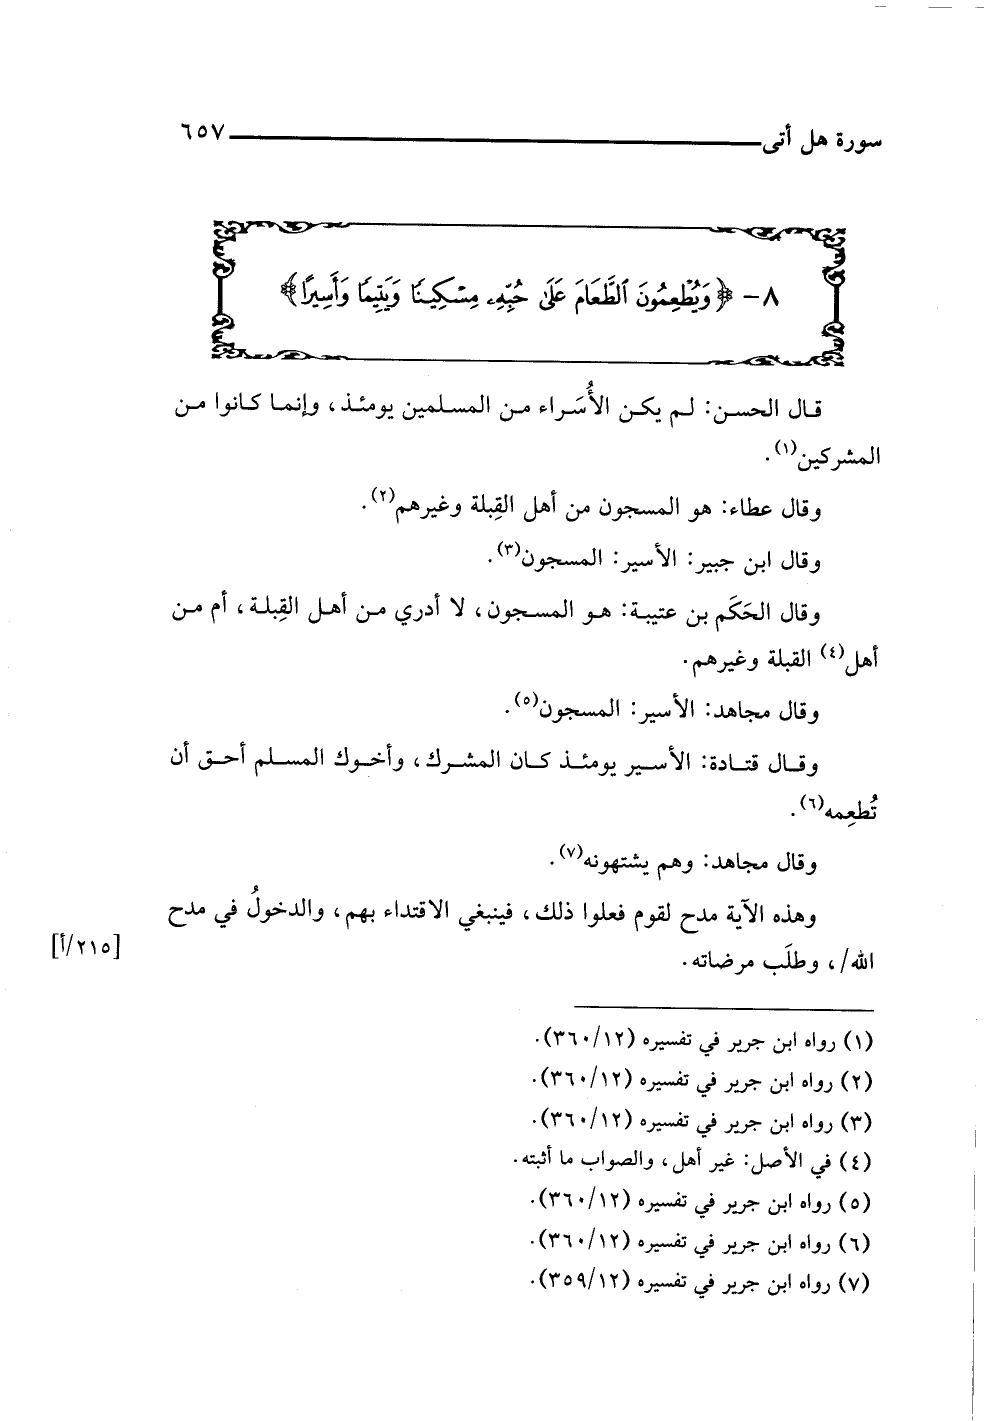 سورة هل أتى ٦٥٧
٨- ﴿وَيُطْعِمُونَ ٱلطَّعَامَ عَلَىٰ حُبِّهِۦ مِسْكِينًا وَيَتِيمًا وَأَسِيرًا﴾
قال الحسن: لم يكن الأُسَراء من المسلمين يومئذ، وإنما كانوا من
المشركين(١).
وقال عطاء: هو المسجون من أهل القِبلة وغيرهم(٢).
وقال ابن جبير: الأسير: المسجون(٣).
وقال الحَكَم بن عتيبة: هو المسجون، لا أدري من أهل القِبلة، أم من
أهل(٤) القبلة وغيرهم.
وقال مجاهد: الأسير: المسجون(٥).
وقال قتادة: الأسير يومئذ كان المشرك، وأخوك المسلم أحق أن
تُطعِمه(٦).
وقال مجاهد: وهم يشتهونه(٧).
وهذه الآية مدح لقوم فعلوا ذلك، فينبغي الاقتداء بهم، والدخولُ في مدح
الله/، وطلَب مرضاته. [٢١٥/أ]
(١) رواه ابن جرير في تفسيره (٣٦٠/١٢).
(٢) رواه ابن جرير في تفسيره (٣٦٠/١٢).
(٣) رواه ابن جرير في تفسيره (٣٦٠/١٢).
(٤) في الأصل: غير أهل، والصواب ما أثبته.
(٥) رواه ابن جرير في تفسيره (٣٦٠/١٢).
(٦) رواه ابن جرير في تفسيره (٣٦٠/١٢).
(٧) رواه ابن جرير في تفسيره (٣٥٩/١٢).